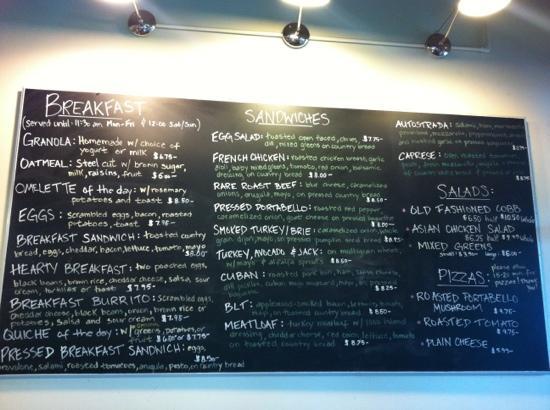 BREAKFAST
(served until 11:30 am Mon-Fri & 12:00 Sat/Sun)
GRANOLA: Homemade w/ choice of
yogurt or milk $6.75-
OATMEAL: Steel cut w/ brown sugar,
milk, raisins, fruit
OMELETTE of the day: w/ rosemary
potatoes and toast $8.50
EGGS: Scrambled eggs, bacon, roasted
potatoes, toast $7.95-
BREAKFAST SANDWICH: toasted country
bread, eggs, cheddar, bacon, lettuce, tomato, mayo
$8.00-
HEARTY BREAKFAST: two poached eggs,
black beans, brown rice, cheddar cheese, salsa, sour
cream, tortillas or toast $7.95-
BREAKFAST BURRITO: Scrambled eggs,
cheddar cheese, black beans, onion, brown rice or
potatoes, salsa and sour cream $7.95-
QUICHE of the day: w/ greens, potatoes, or
fruit $6.00- or $7.75-
PRESSED BREAKFAST SANDWICH: eggs,
$8.50-
provolone, salami, roasted tomatoes, arugula, pesto, on country bread
SANDWICHES
EGG SALAD: toasted open faced, chives, $7.75-
dill, mixed greens on country bread
FRENCH CHICKEN: roasted chicken breast, garlic
aioli, bacon, tomato, red onion, balsamic
dressing, on country bread $8.00-
RARE ROAST BEEF: blue cheese, caramelized
onions, arugula, mayo, on pressed bread
PRESSED PORTABELLO: roasted red pepper,
caramelized onion, goat cheese on pressed baguette
SMOKED TURKEY/BRIE: caramelized onion,
grain dijon, mayo, on pressed bread
TURKEY, AVOCADO & JACK: on multigrain wheat,
w/ mayo & alfalfa sprouts
CUBAN: roasted pork loin, ham, swiss cheese,
dill pickles, cuban mayo, mustard, on pressed
BLT: applewood-smoked bacon, lettuce, tomato,
mayo, on toasted country bread $8.50
MEATLOAF: turkey meatloaf w/ 1000 island
dressing, cheddar cheese, red onion, lettuce, tomato
on toasted country bread $8.75-
AUTOSTRADA: salami, ham,
provolone, mozzarella, pepperoncini,
and mustard on pressed baguette
CAPRESE: roasted tomatoes,
basil, mozzarella, arugula
country bread
SALADS:
• OLD FASHIONED COBB
$6.50 half $10.50 whole
• ASIAN CHICKEN SALAD
half $9.95 whole
• MIXED GREENS
small: $3.50- large: $6.00-
PIZZAS:
please
for
pizzas! thank
you!
• ROASTED PORTABELLO
MUSHROOM $7.95-
• ROASTED TOMATO
$7.95-
• PLAIN CHEESE
$5.95-